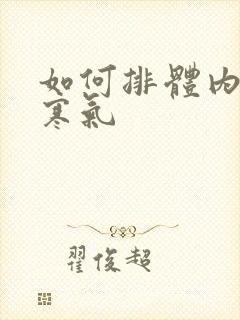 如何排體內
寒氣
翟俊超